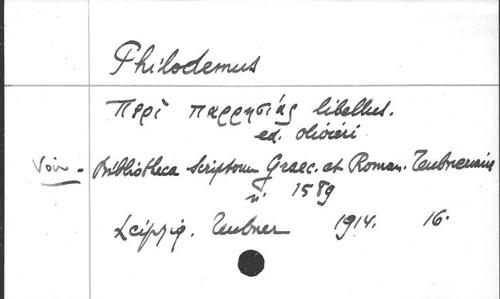 Philodemus
Περὶ παρρησίας libellus.
ed. Olivieri
Voir - Bibliotheca Scriptorum Graec. et Roman. Teubneriana
n. 1589
Leipzig. Teubner 1914. 16.